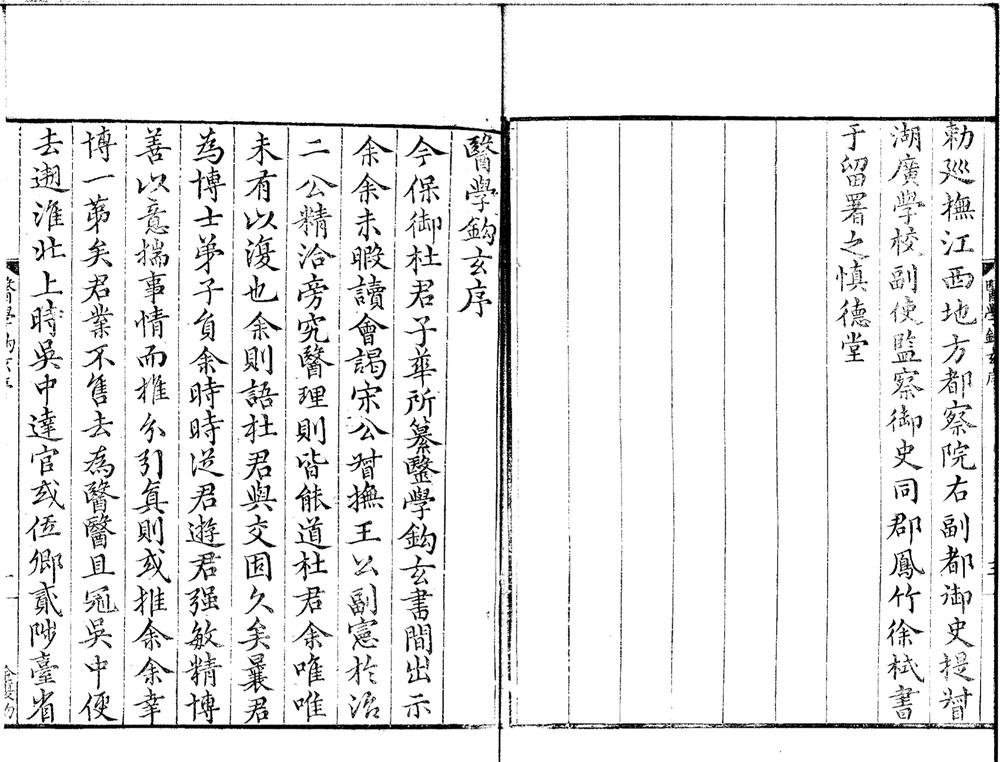 勅巡撫江西地方都察院右副都御史提督
湖廣學校副使監察御史同郡鳳竹徐栻書
于留署之慎德堂
醫學鈎玄序
今保御杜君子華所纂醫學鈎玄書間出示
余余未暇讀會謁宋公督撫王公副憲於治
二公精洽旁究醫理則皆能道杜君余唯唯
未有以復也余則語杜君與交固久矣曩君
為博士弟子員余時時從君遊君强敏精博
善以意揣事情而推分引真則或推余余幸
博一第矣君業不售去為醫醫且冠吳中便
去遡淮北上時吳中達官或伍卿貳陟臺省
醫學鈎玄序